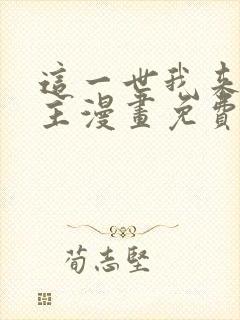 這一世我來
主漫畫免費
荀志堅